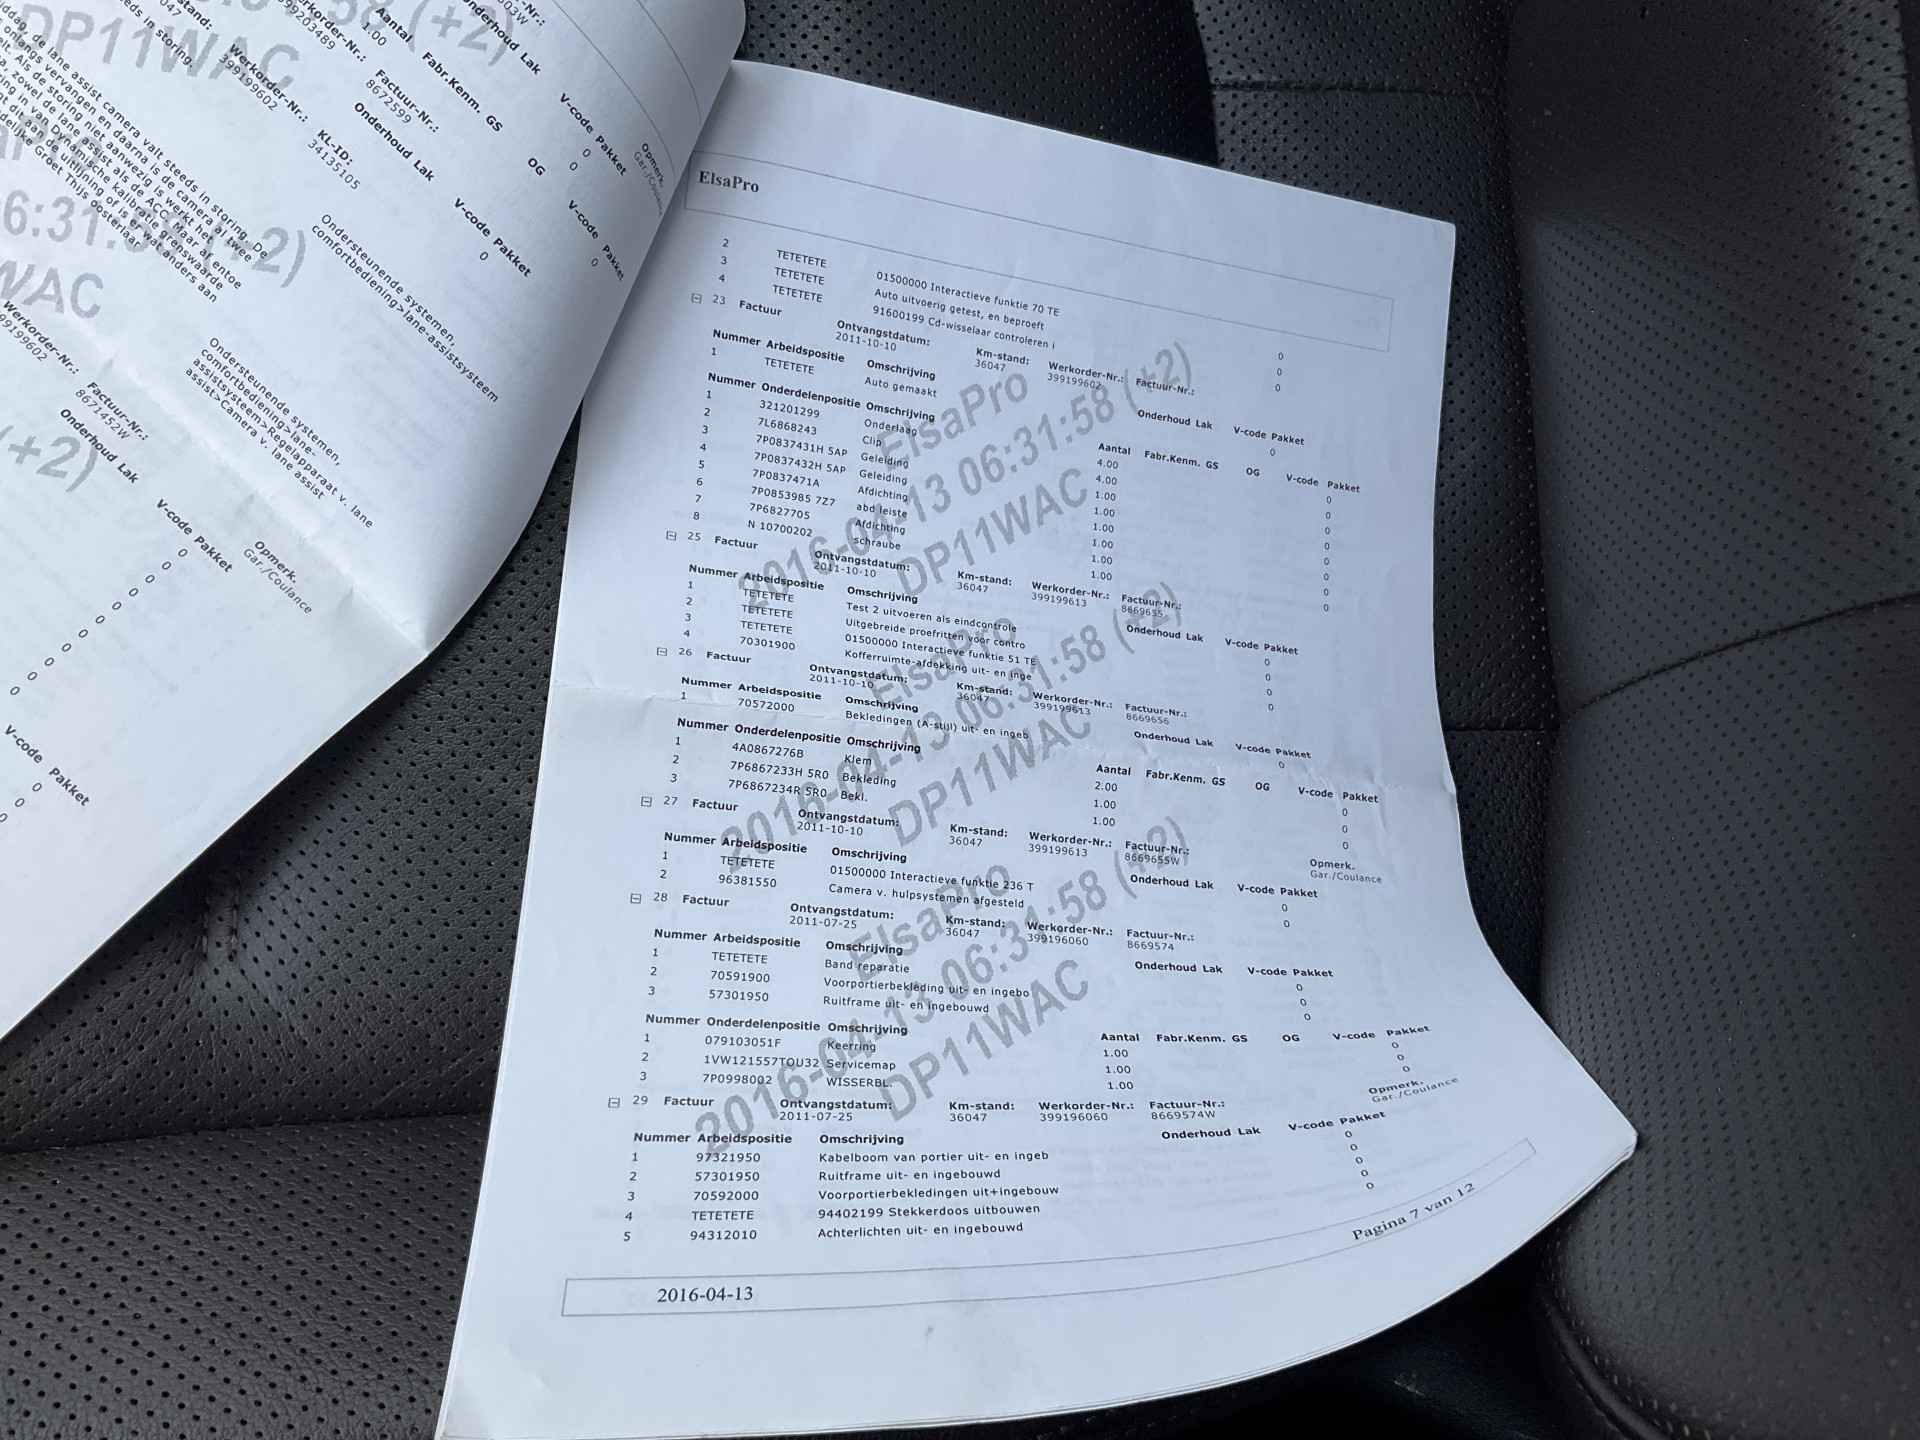 DP11WAC
Onderhoud Lak
Aantal Fabr.Kenm. GS OG V-code Pakket
1.00 0 0
Werkorder-Nr.: Factuur-Nr.:
399199602 8672599
Onderhoud Lak V-code Pakket
0 0
KL-ID:
34135105
de lane assist camera valt steeds in storing. De
Ondersteunende systemen,
comfortbediening>lane-assistsysteem
Ondersteunende systemen,
comfortbediening>lane-
assistsysteem>Regelapparaat v. lane
assist>Camera v. lane assist
Werkorder-Nr.: Factuur-Nr.:
8671452W
Onderhoud Lak V-code Pakket
Opmerk.
Gar./Coulance
0
0
0
0
0
0
0
0
V-code Pakket
0
0
0
ElsaPro
2 TETETETE 01500000 Interactieve funktie 70 TE 0
3 TETETETE Auto uitvoerig getest, en beproeft 0
4 TETETETE 91600199 Cd-wisselaar controleren i 0
23 Factuur Ontvangstdatum: Km-stand: Werkorder-Nr.: Factuur-Nr.:
2011-10-10 36047 399199602
Nummer Arbeidspositie Omschrijving Onderhoud Lak V-code Pakket
1 TETETETE Auto gemaakt 0
Nummer Onderdelenpositie Omschrijving Aantal Fabr.Kenm. GS OG V-code Pakket
1 321201299 Onderlaag 4.00 0
2 7L6868243 Clip 4.00 0
3 7P0837431H 5AP Geleiding 1.00 0
4 7P0837432H 5AP Geleiding 1.00 0
5 7P0837471A Afdichting 1.00 0
6 7P0853985 7Z7 abd leiste 1.00 0
7 7P6827705 Afdichting 1.00 0
8 N 10700202 schraube 1.00 0
25 Factuur Ontvangstdatum: Km-stand: Werkorder-Nr.: Factuur-Nr.:
2011-10-10 36047 399199613 8669655
Nummer Arbeidspositie Omschrijving Onderhoud Lak V-code Pakket
1 TETETETE Test 2 uitvoeren als eindcontrole 0
2 TETETETE Uitgebreide proefritten voor contro 0
3 TETETETE 01500000 Interactieve funktie 51 TE 0
4 70301900 Kofferruimte-afdekking uit- en inge 0
26 Factuur Ontvangstdatum: Km-stand: Werkorder-Nr.: Factuur-Nr.:
2011-10-10 36047 399199613 8669656
Nummer Arbeidspositie Omschrijving Onderhoud Lak V-code Pakket
1 70572000 Bekledingen (A-stijl) uit- en ingeb 0
Nummer Onderdelenpositie Omschrijving Aantal Fabr.Kenm. GS OG V-code Pakket
1 4A0867276B Klem 2.00 0
2 7P6867233H 5R0 Bekleding 1.00 0
3 7P6867234R 5R0 Bekl. 1.00 0
27 Factuur Ontvangstdatum: Km-stand: Werkorder-Nr.: Factuur-Nr.: Opmerk.
2011-10-10 36047 399199613 8669655W Gar./Coulance
Nummer Arbeidspositie Omschrijving Onderhoud Lak V-code Pakket
1 TETETETE 01500000 Interactieve funktie 236 T 0
2 96381550 Camera v. hulpsystemen afgesteld 0
28 Factuur Ontvangstdatum: Km-stand: Werkorder-Nr.: Factuur-Nr.:
2011-07-25 36047 399196060 8669574
Nummer Arbeidspositie Omschrijving Onderhoud Lak V-code Pakket
1 TETETETE Band reparatie 0
2 70591900 Voorportierbekleding uit- en ingebo 0
3 57301950 Ruitframe uit- en ingebouwd 0
Nummer Onderdelenpositie Omschrijving Aantal Fabr.Kenm. GS OG V-code Pakket
1 079103051F Keerring 1.00 0
2 1VW121557TOU32 Servicemap 1.00 0
3 7P0998002 WISSERBL. 1.00 0
29 Factuur Ontvangstdatum: Km-stand: Werkorder-Nr.: Factuur-Nr.: Opmerk.
2011-07-25 36047 399196060 8669574W Gar./Coulance
Nummer Arbeidspositie Omschrijving Onderhoud Lak V-code Pakket
1 97321950 Kabelboom van portier uit- en ingeb 0
2 57301950 Ruitframe uit- en ingebouwd 0
3 70592000 Voorportierbekledingen uit+ingebouw 0
4 TETETETE 94402199 Stekkerdoos uitbouwen 0
5 94312010 Achterlichten uit- en ingebouwd 0
ElsaPro
2016-04-13 06:31:58 (+2)
DP11WAC
ElsaPro
2016-04-13 06:31:58 (+2)
DP11WAC
ElsaPro
2016-04-13 06:31:58 (+2)
DP11WAC
2016-04-13 Pagina 7 van 12